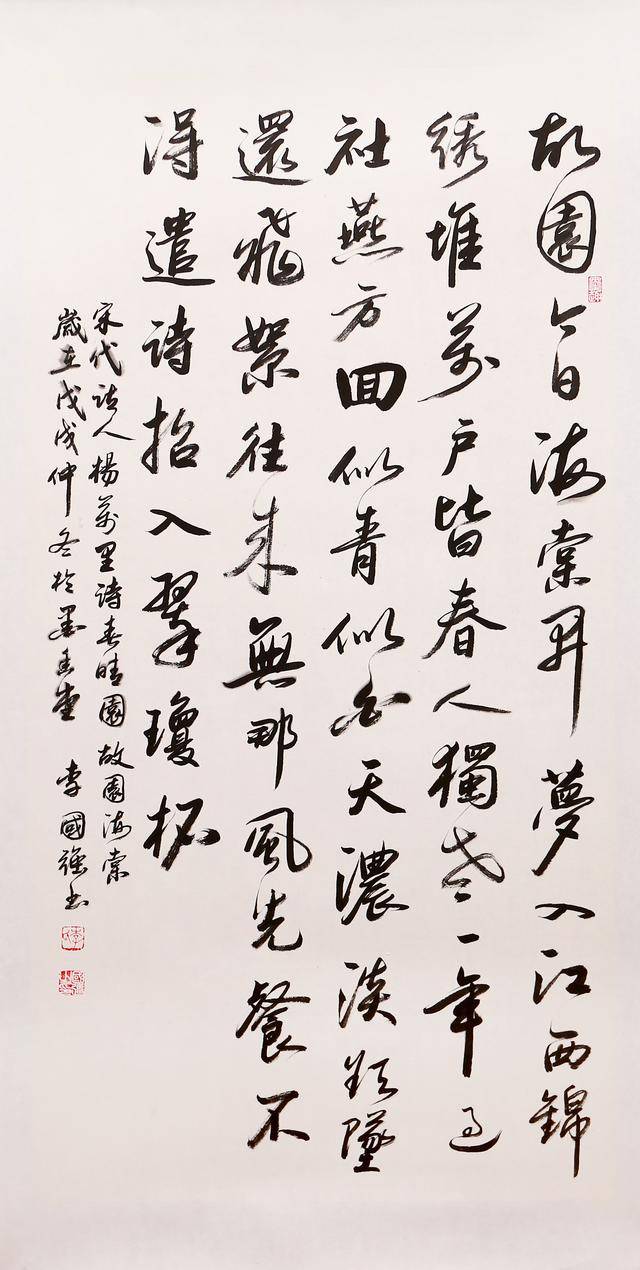 故園今日海棠開夢入江西錦
绣堆萬戶皆春人獨老一年過
社燕方回似青似白天濃淡欲墜
還飛絮往来無那風光餐不
得遣詩招入翠瓊杯
宋代詩人楊萬里詩春晴園故園海棠
歲在戊戌仲冬於墨香堂 李國強書